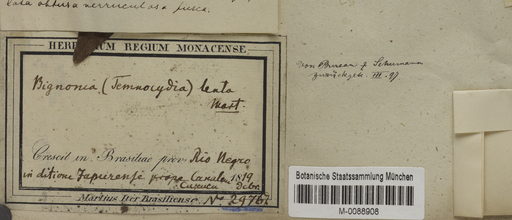 lata obtusa verruculosa fusca.
HERBARIUM REGIUM MONACENSE
Bignonia (Temnocydia) lenta
Mart.
Crescit in Brasiliae prov. Rio Negro
in ditione Japurensi prope 1819
Decbr.
Martius Iter Brasiliense. No 2976.
von Bureau & Schumann
zurückgek. III. 97
Botanische Staatssammlung München
M-0088908